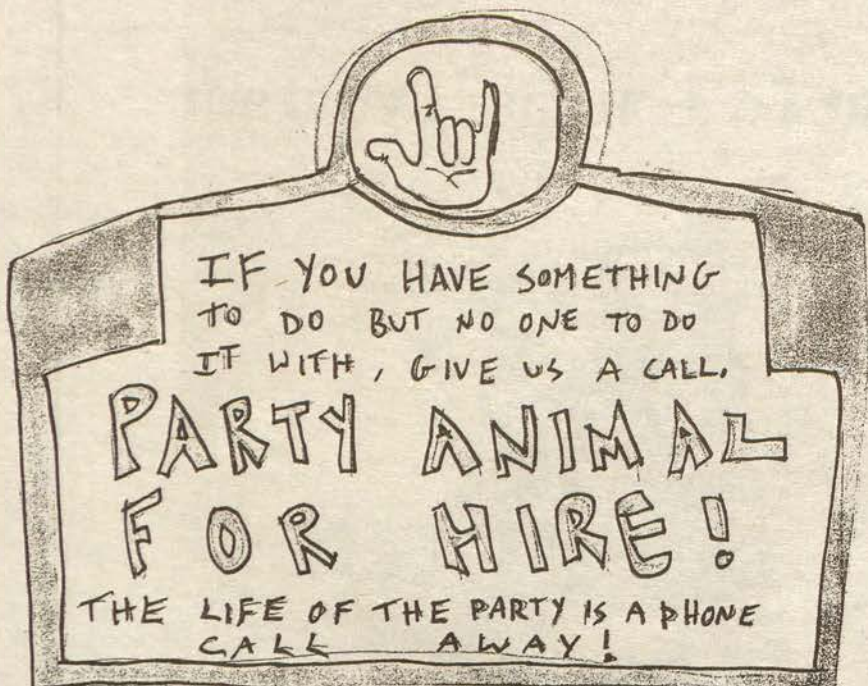 IF YOU HAVE SOMETHING
TO DO BUT NO ONE TO DO
IT WITH, GIVE US A CALL.
PARTY ANIMAL
FOR HIRE!
THE LIFE OF THE PARTY IS A PHONE
CALL AWAY!